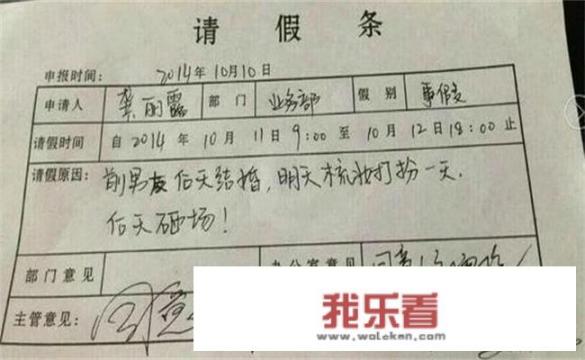 请假条
申报时间： 2014年10月10日
申请人 龚丽露 部门 业务部 假别 事假
请假时间 自2014年10月11日9:00至10月12日18:00止
请假原因： 前男友后天结婚，明天梳妆打扮一天.
后天砸场！
部门意见 办公室意见 同意
主管意见： 同意
我乐看
www.woleken.com